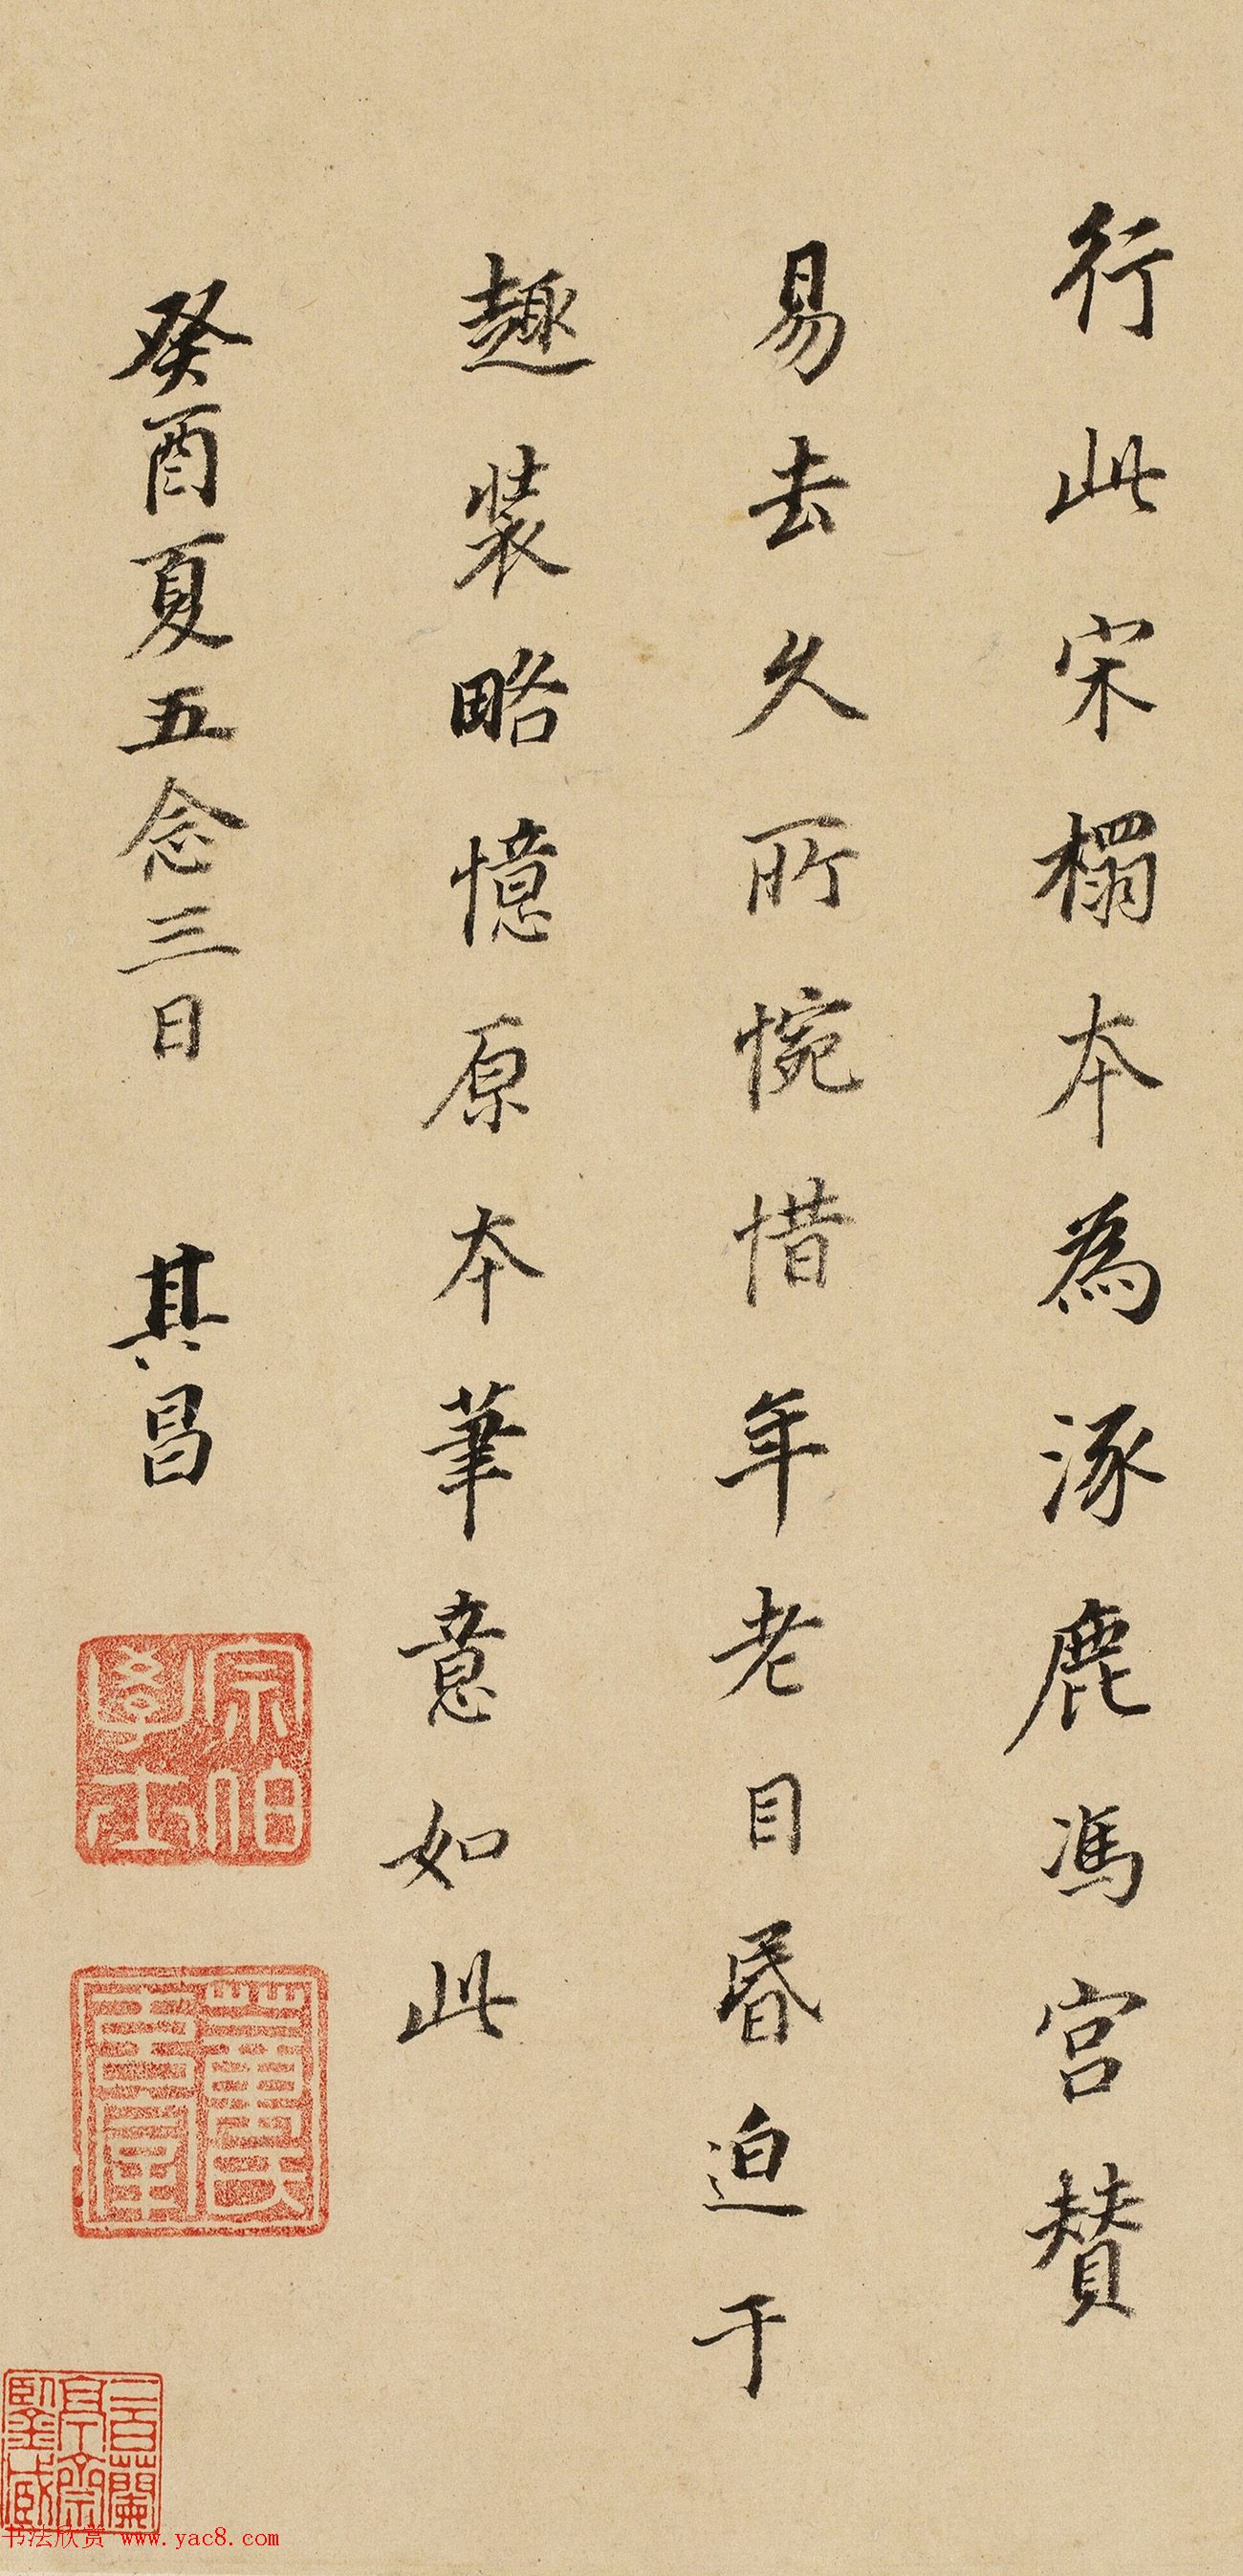 行此宋榻本為涿鹿馮宫贊
易去久所惋惜年老目昏迫于
趣裝略憶原本筆意如此
癸酉夏五念三日 其昌
宗伯學士
三百蘭亭齋鑒藏
书法欣赏 www.yac8.com